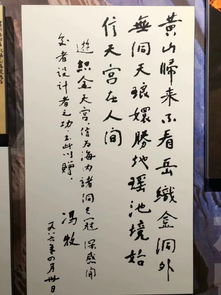 黄山归来不看岳織金洞外
無洞天琅嬛勝地瑶池境始
信天宫在人间
遊織金天宫信为海内诸洞之冠深感开
发者设计者之功书此以赠
冯牧
一九八六年四月廿日